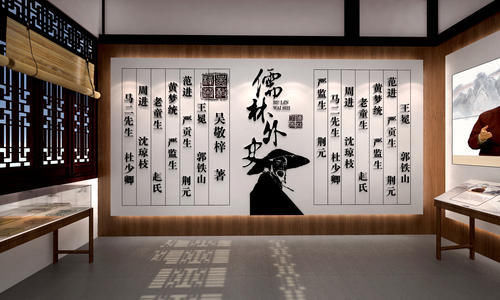 王冕 郭铁山
范进 严贡生 荆元
黄梦统 严监生
老童生 赵氏
周进 沈琼枝
马二先生 杜少卿
严监生 荆元
儒林外史
RU LIN
WAI SHI
吴敬梓 著
王冕 郭铁山
范进 严贡生 荆元
黄梦统 严监生
老童生 赵氏
周进 沈琼枝
马二先生 杜少卿